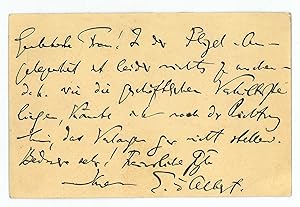 Frau! In der Flügel-An-
gelegenheit ist leider nichts zu machen
d. h. wie die geschäftlichen Verhältnisse
liegen, könnte ich nach der Richtung
hin, das Verlangen gar nicht stellen.
Bedaure sehr! Herzliche Grüße
Ihres E. d'Albert.